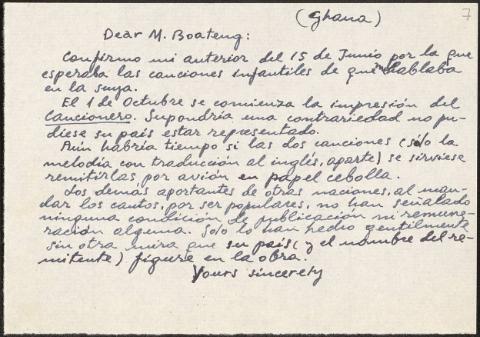 (Ghana)
7
Dear M. Boateng:
Confirmo mi anterior del 15 de Junio por la que
esperaba las canciones infantiles de que me hablaba
en la suya.
El 1 de Octubre se comienza la impresión del
Cancionero. Supondría una contrariedad no pu-
diese su país estar representado.
Aún habría tiempo si las dos canciones (sólo la
melodía con traducción al inglés, aparte) se sirviese
remitirlas por avión en papel cebolla.
Los demás aportantes de otras naciones, al man-
dar los cantos, por ser populares, no han señalado
ninguna condición de publicación ni remune-
ración alguna. Sólo lo han hecho gentilmente
sin otra mira que su país (y el nombre del re-
mitente) figure en la obra.
Yours sincerely